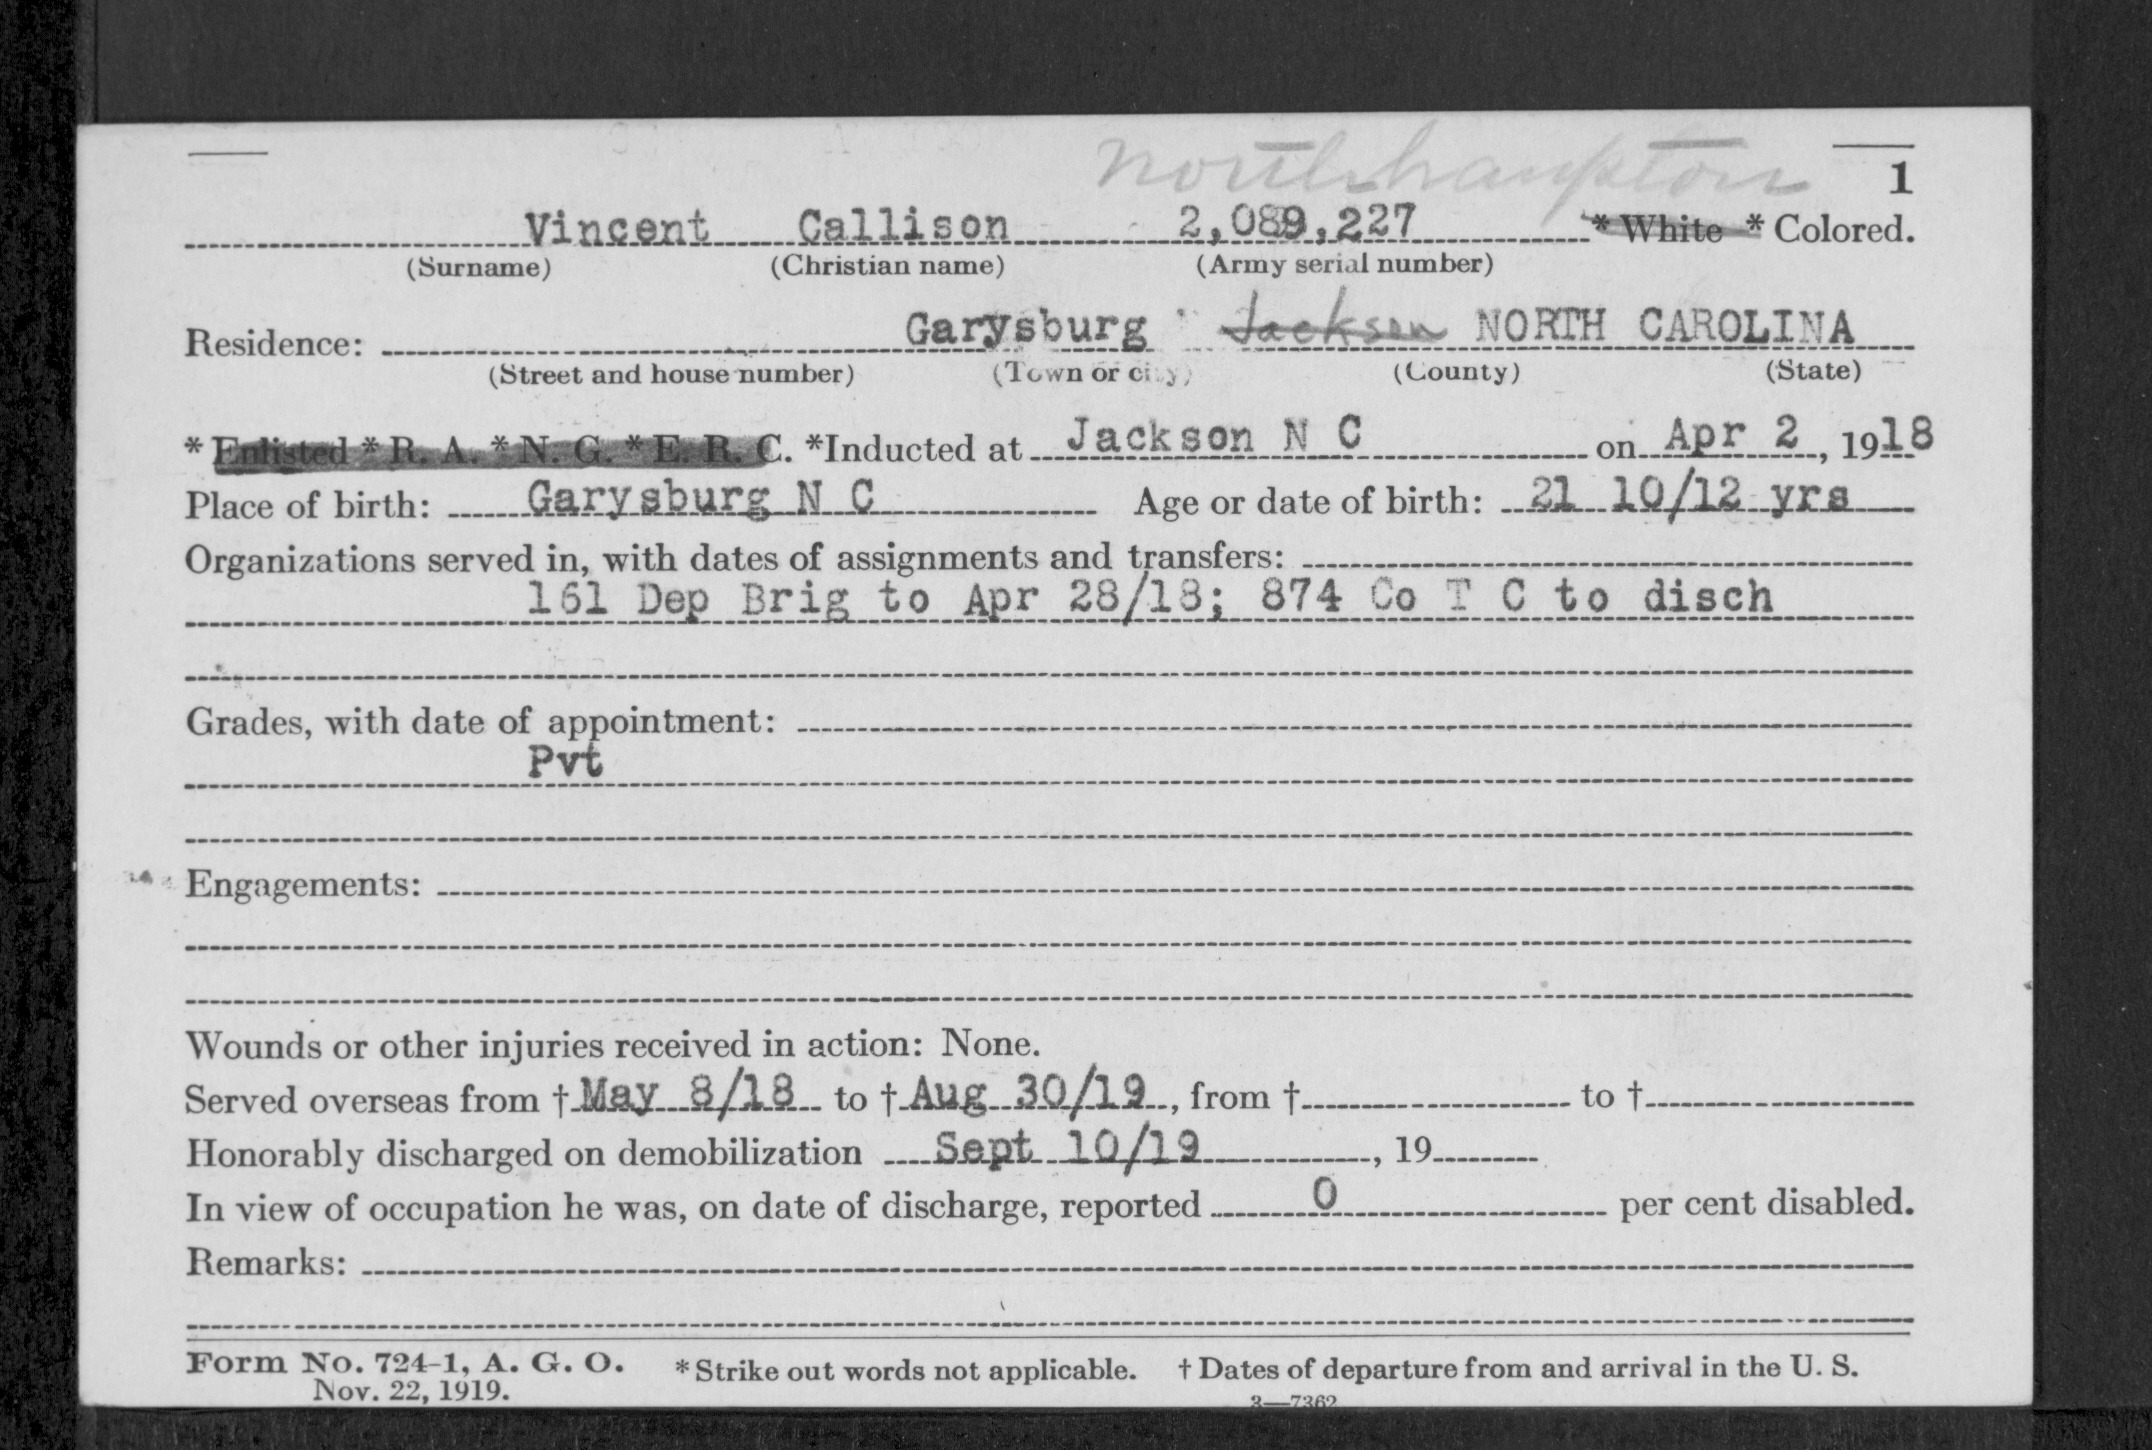 Northampton
1
Vincent Callison 2,089,227 * White * Colored.
(Surname) (Christian name) (Army serial number)
Residence: Garysburg Jackson NORTH CAROLINA
(Street and house number) (Town or city) (County) (State)
* Enlisted * R. A. * N. G. * E. R. C. *Inducted at Jackson N C on Apr 2, 1918
Place of birth: Garysburg N C Age or date of birth: 21 10/12 yrs
Organizations served in, with dates of assignments and transfers:
161 Dep Brig to Apr 28/18; 874 Co T C to disch
Grades, with date of appointment:
Pvt
Engagements:
Wounds or other injuries received in action: None.
Served overseas from † May 8/18 to † Aug 30/19, from † to †
Honorably discharged on demobilization Sept 10/19, 19
In view of occupation he was, on date of discharge, reported 0 per cent disabled.
Remarks:
Form No. 724-1, A. G. O. * Strike out words not applicable. † Dates of departure from and arrival in the U. S.
Nov. 22, 1919.
3—7362